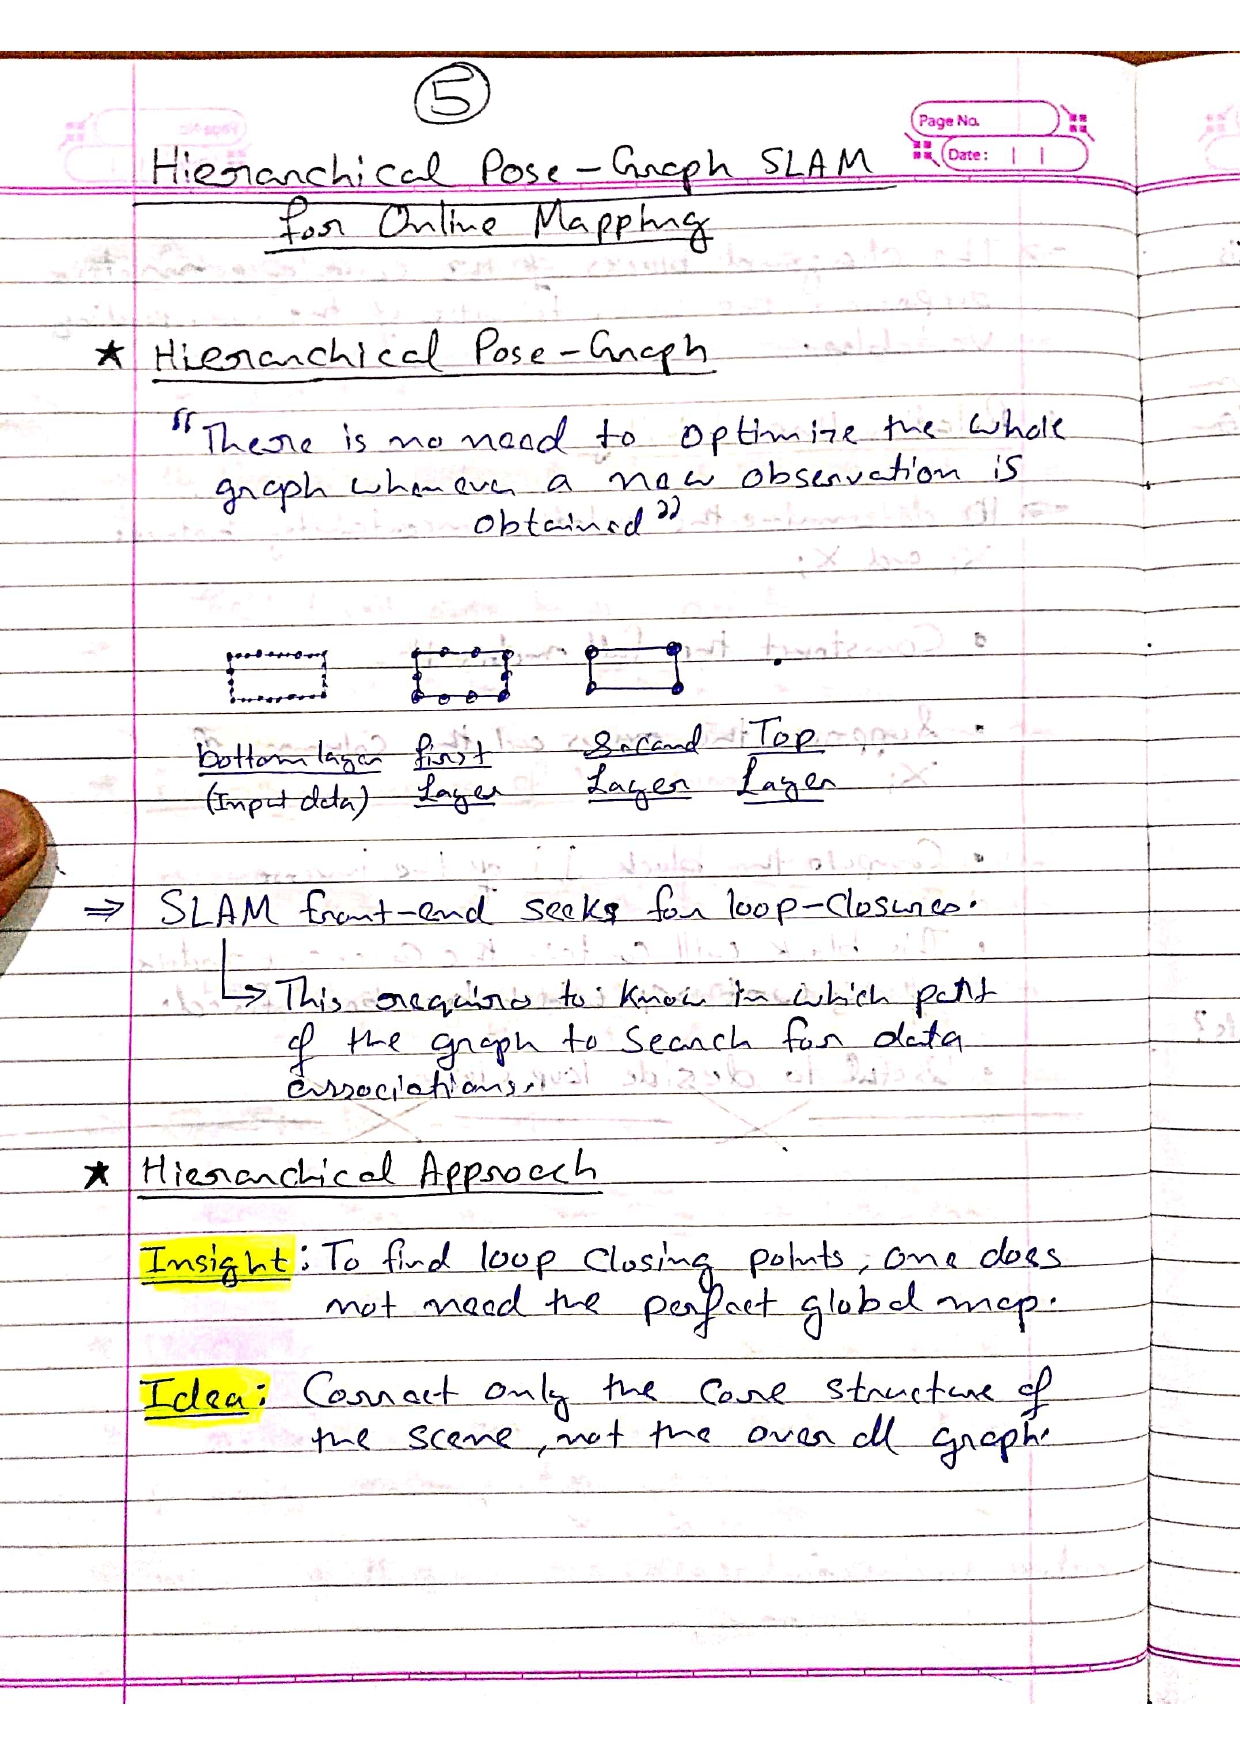 5
Page No.
Date:
Hierarchical Pose-Graph SLAM
for Online Mapping
★ Hierarchical Pose-Graph
"There is no need to optimize the whole
graph whenever a new observation is
obtained"
bottom layer first Second Top
(Input data) Layer Layer Layer
⇒ SLAM front-end seeks for loop-closures.
↳ This requires to know in which part
of the graph to search for data
associations.
★ Hierarchical Approach
Insight: To find loop closing points, one does
not need the perfect global map.
Idea: Correct only the core structure of
the scene, not the overall graph.